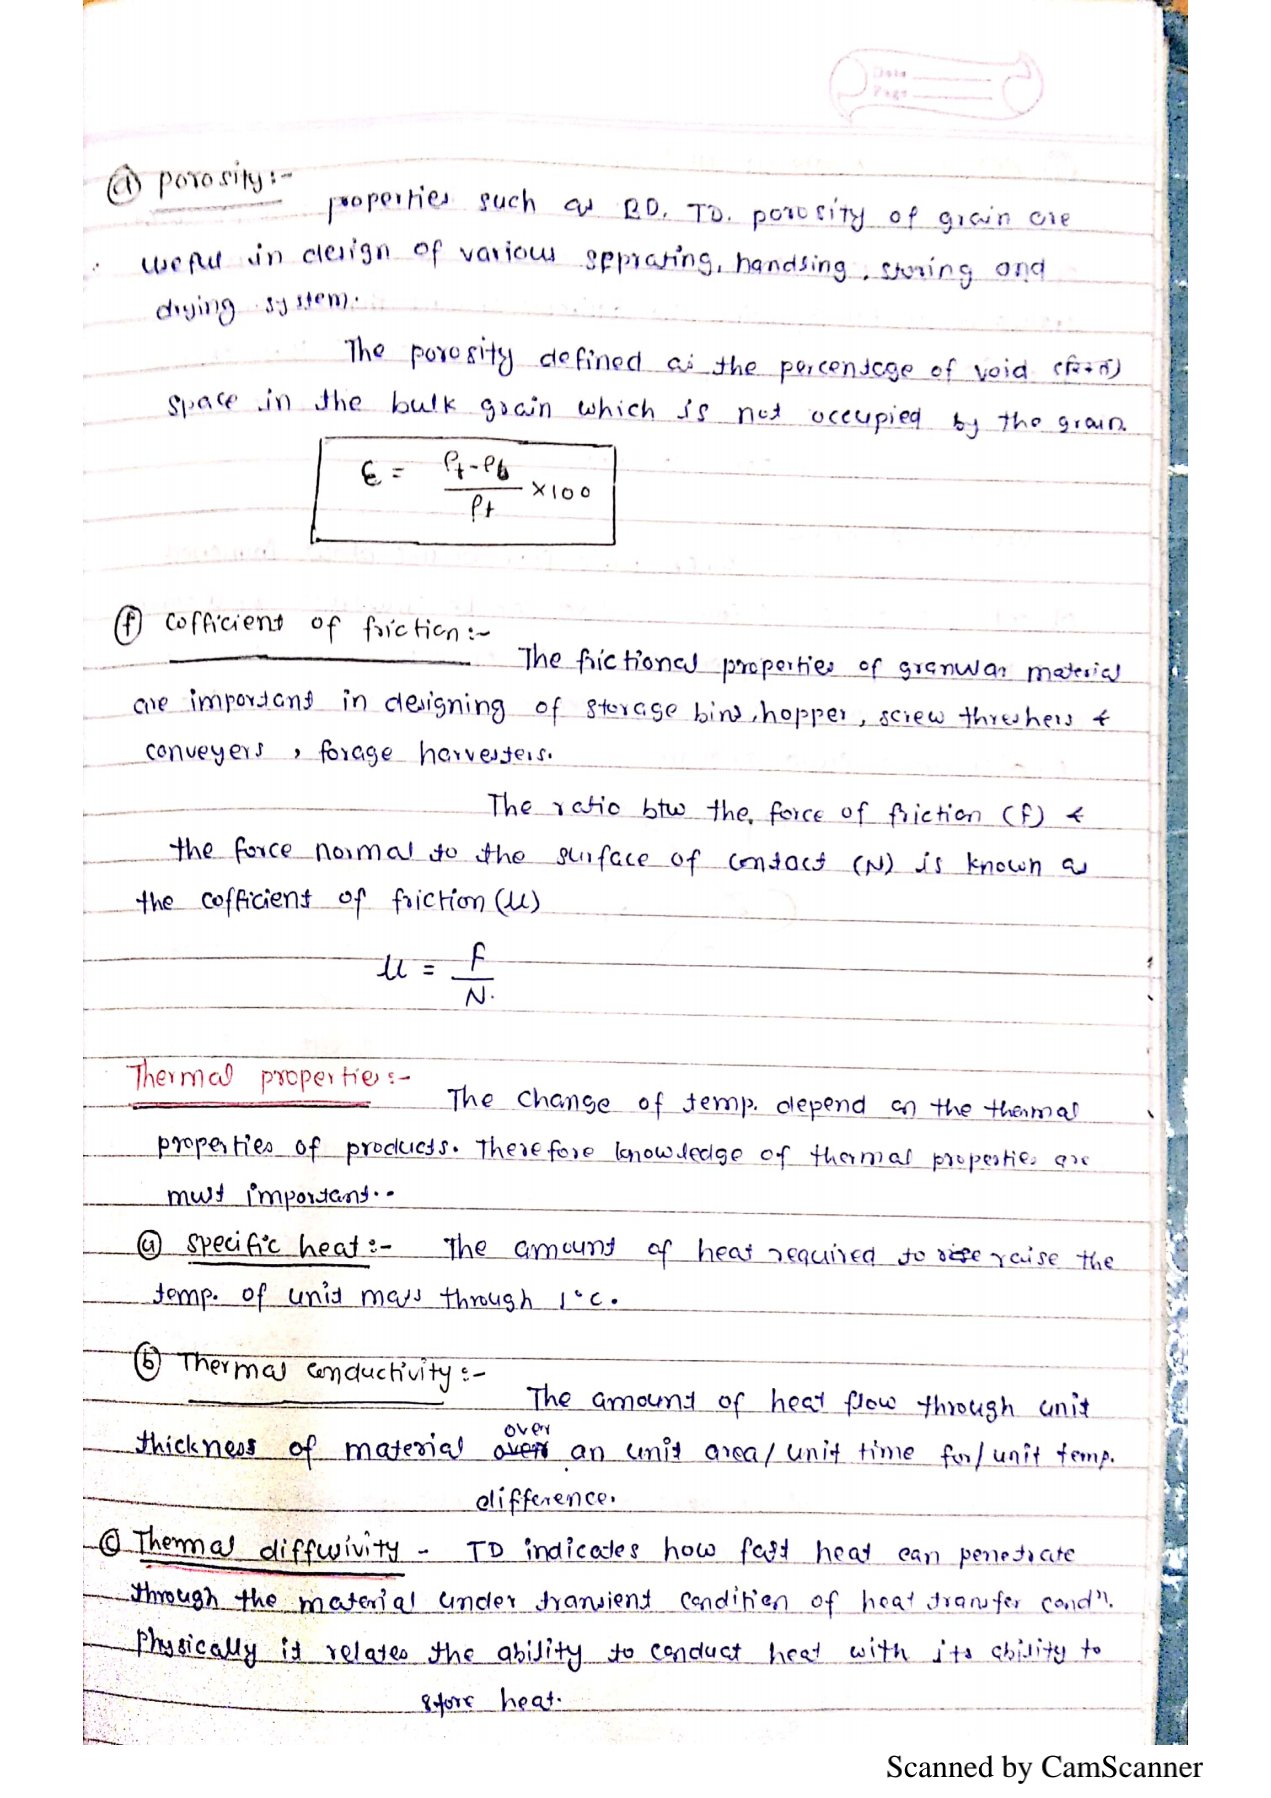 Date
Page
ⓓ porosity:-
properties such as BD, TD. porosity of grain are
useful in design of various seprating, handling, storing and
drying system.
The porosity defined as the percentage of void (रिक्त)
space in the bulk grain which is not occupied by the grain.
ε = ρt-ρb / ρt ×100
ⓕ Cofficient of friction:-
The frictional properties of granular material
are important in designing of storage bins, hopper, screw threshers &
conveyers, forage harvesters.
The ratio btw the, force of friction (F) &
the force normal to the surface of contact (N) is known as
the cofficient of friction (μ)
μ = F / N.
Thermal properties:-
The change of temp. depend on the thermal
properties of products. Therefore knowledge of thermal properties are
must important..
ⓐ specific heat:- The amount of heat required to raise the
temp. of unit mass through 1°c.
ⓑ Thermal conductivity:-
The amount of heat flow through unit
over
thickness of material an unit area / unit time for / unit temp.
difference.
ⓒ Thermal diffusivity - TD indicates how fast heat can penetrate
through the material under transient condition of heat transfer condⁿ.
Physically it relates the ability to conduct heat with its ability to
store heat.
Scanned by CamScanner